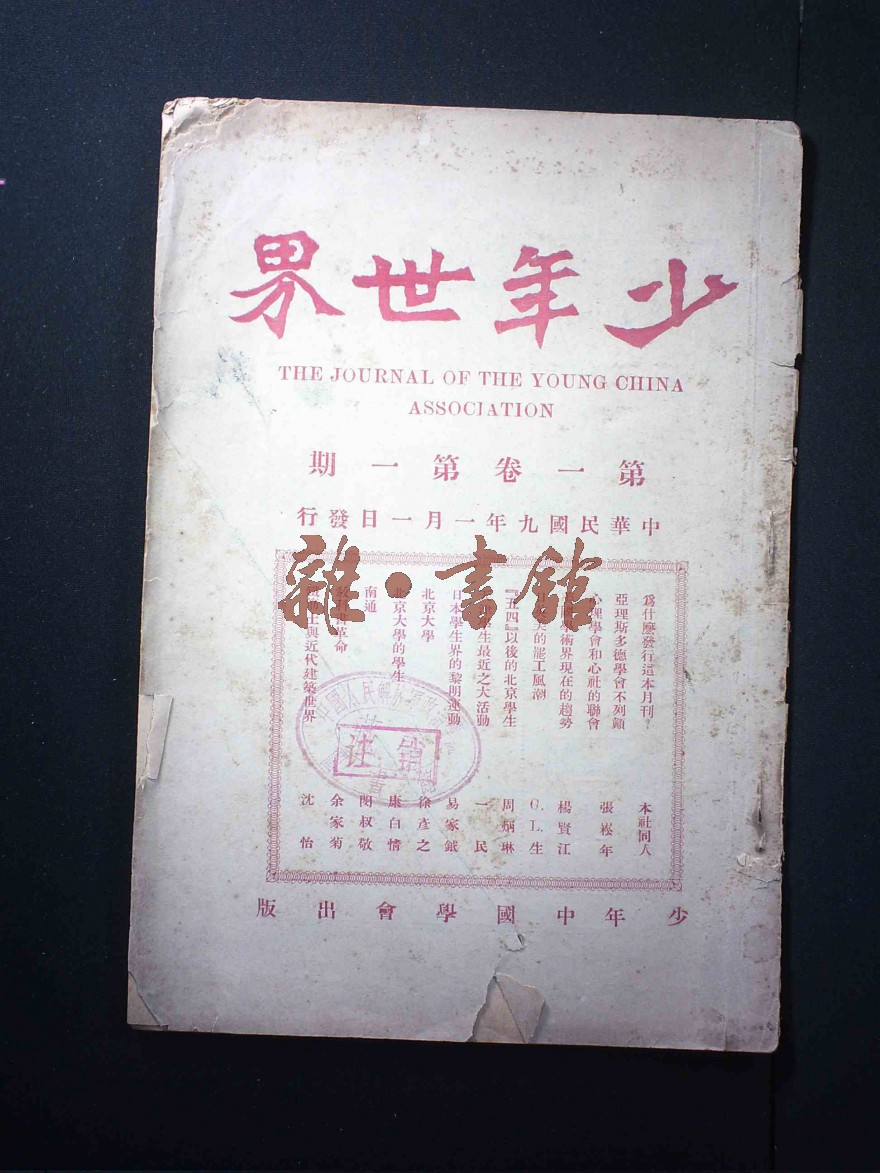 少年世界
THE JOURNAL OF THE YOUNG CHINA
ASSOCIATION
第一卷第一期
中華民國九年一月一日發行
爲什麽發行這本月刊? 本社同人
亞理斯多德學會不列顛
心理學會和心社的聯會 張崧年
學術界現在的趨勢 楊賢江
的罷工風潮 G. L. 生
『五四』以後的北京學生 周炳琳
生最近之大活動 一民
日本學生界的黎明運動 易家鉞
北京大學 徐彥之
北京大學的學生 康白情
南通 閔叔敬
教科書革命 余家菊
士與近代建築世界 沈怡
少年中國學會出版
雜·書館
中國人民
註銷